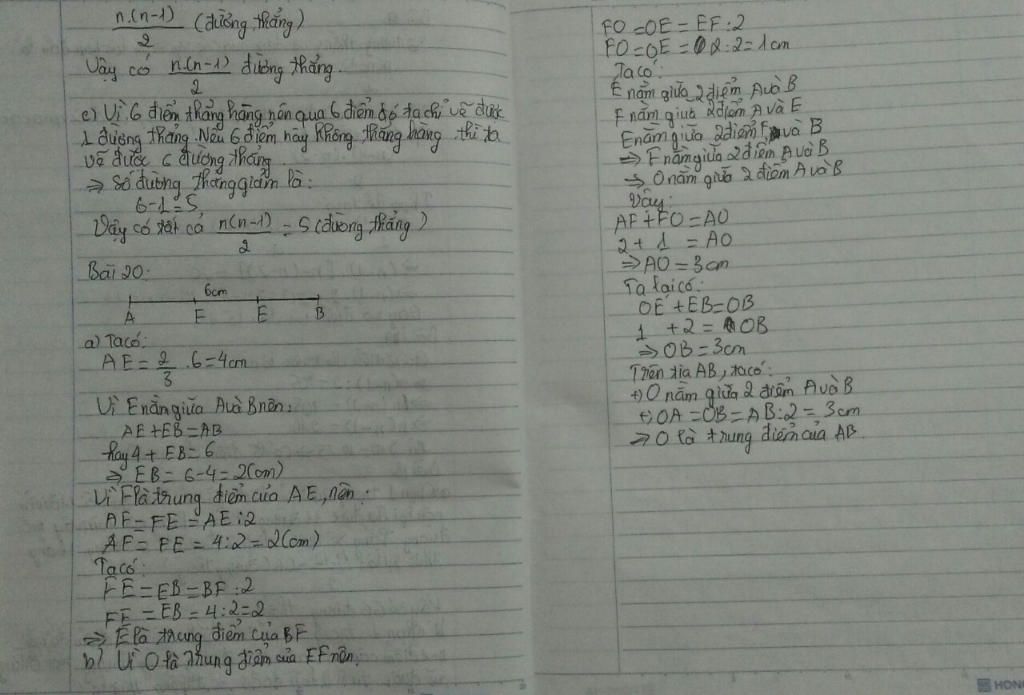 n.(n-1)/2 (đường thẳng)
Vậy có n.(n-1)/2 đường thẳng.
c) Vì 6 điểm thẳng hàng nên qua 6 điểm đó ta chỉ vẽ được
1 đường thẳng. Nếu 6 điểm này không thẳng hàng thì ta
vẽ được 6 đường thẳng
=> Số đường thẳng giảm là:
6-1=5
Vậy có tất cả n(n-1)/2 = 5 (đường thẳng)
Bài 20:
6cm
A F E B
a) Ta có:
AE = 2/3 . 6 = 4cm
Vì E nằm giữa A và B nên:
AE + EB = AB
hay 4 + EB = 6
=> EB = 6-4 = 2(cm)
Vì F là trung điểm của AE, nên:
AF = FE = AE : 2
AF = FE = 4:2 = 2(cm)
Ta có:
FE = EB = BF : 2
FE = EB = 4:2 = 2
=> E là trung điểm của BF
b) Vì O là trung điểm của EF nên:
FO = OE = EF : 2
FO = OE = 2:2 = 1cm
Ta có:
E nằm giữa 2 điểm A và B
F nằm giữa 2 điểm A và E
E nằm giữa 2 điểm F và B
=> F nằm giữa 2 điểm A và B
=> O nằm giữa 2 điểm A và B
Vậy:
AF + FO = AO
2 + 1 = AO
=> AO = 3cm
Ta lại có:
OE + EB = OB
1 + 2 = OB
=> OB = 3cm
Trên tia AB, ta có:
+) O nằm giữa 2 điểm A và B
+) OA = OB = AB : 2 = 3cm
=> O là trung điểm của AB.